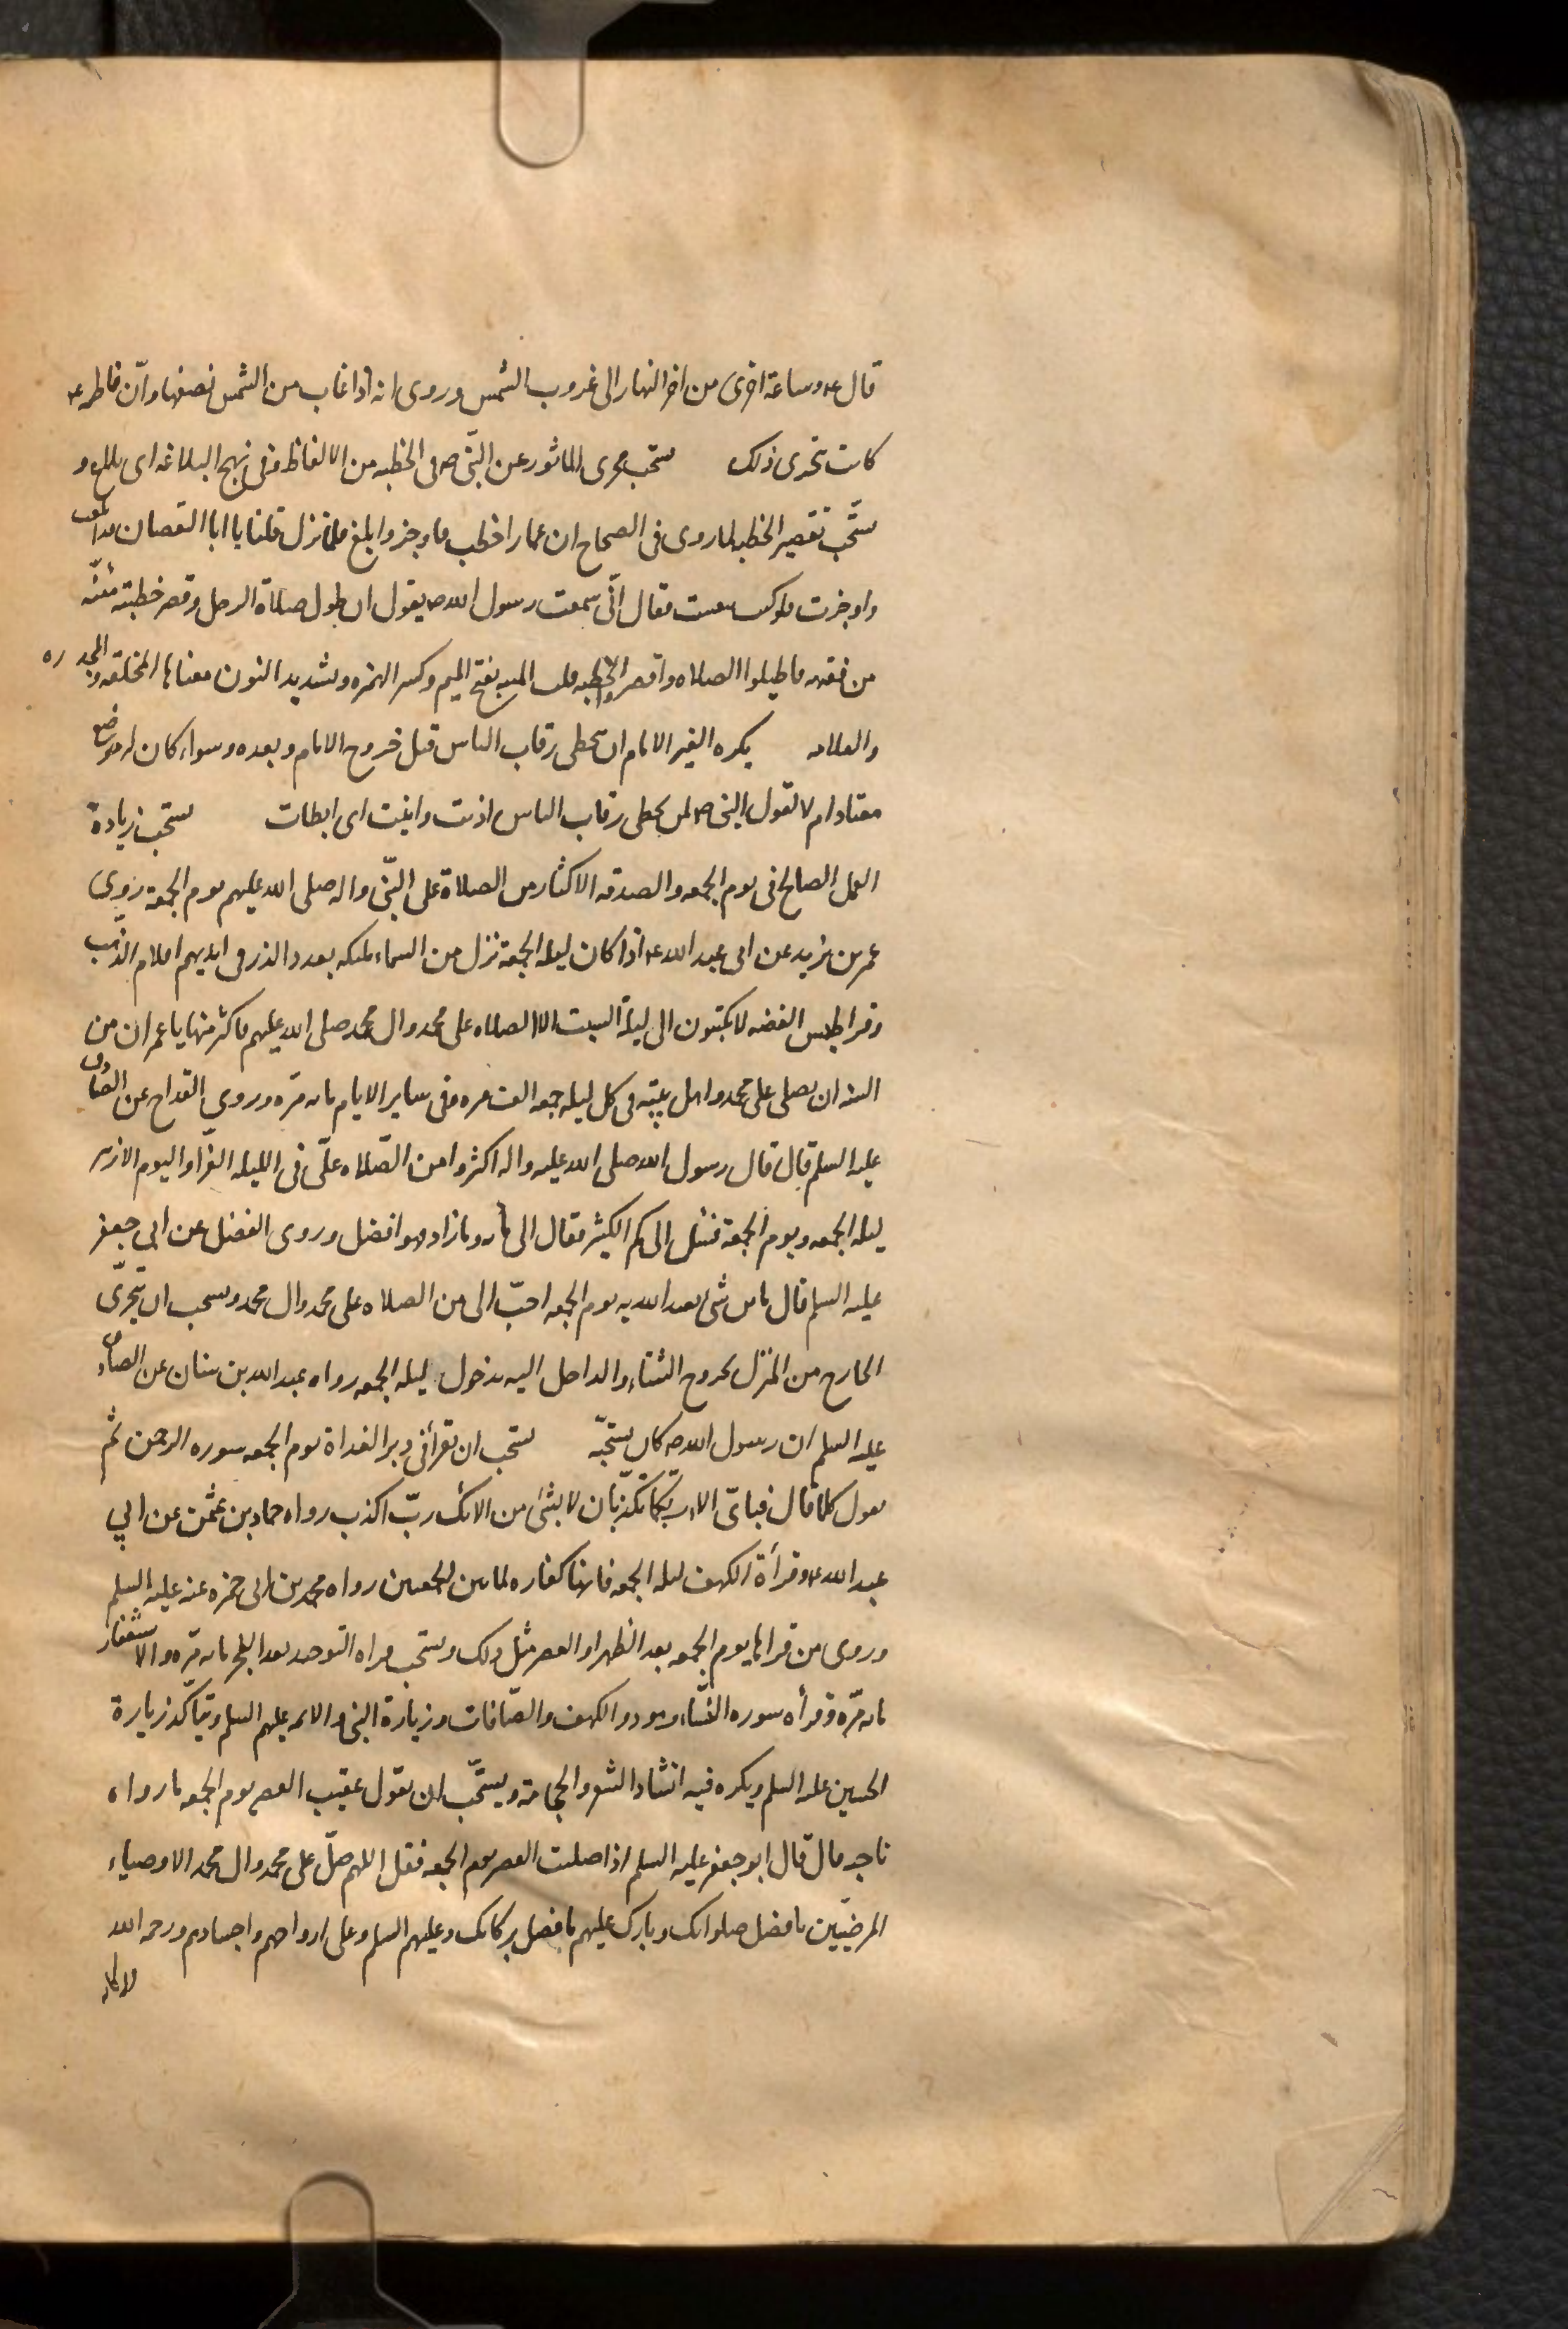 قال ع وساعة اخرى من اخر النهار الى غروب الشمس وروى انه اذا غاب من الشمس نصفها وانّ فاطمه ع
كانت تتحرى ذلك يستحب تحرى الماثور عن النّبى ص فى الخطبه من الالفاظ وفى نهج البلاغه اى بلاغ و
يستّحب تقصير الخطبه لما روى فى الصحاح ان عمارا خطب فاوجز وابلغ فلما نزل قلنا يا ابا اليقصان لقد ابلغت
واوجزت فلو كنت تنفست فقال انّى سمعت رسول الله ص يقول ان طول صلاة الرجل وقصر خطبته مئنّه
من فقهه فاطيلوا الصلاه واقصروا الخطبه قلت المئنه بفتح الميم وكسر الهمزه وتشديد النون معناها المخلقه والمجدره
والعلامه يكره لغير الامام ان يتخطى رقاب الناس قبل خروج الامام وبعده وسواء كان له موضع
معتاد ام لا لقول النبى ص لمن يتخطى رقاب الناس اذيت وانيت اى ابطات يستحب زيادة
العمل الصالح فى يوم الجمعه والصدقه الاكثار من الصلاة على النّبى واله صلى الله عليهم يوم الجمعة روى
عمر بن يزيد عن ابى عبد الله ع اذا كان ليله الجمعة نزل من السماء ملئكه بعدد الذر فى ايديهم اقلام الذهب
وقراطيس الفضه لا يكتبون الى ليلة السبت الا الصلاه على محمد وال محمد صلى الله عليهم فاكثر منها يا عمر ان من
السنه ان يصلى على محمد واهل بيته فى كل ليله جمعه الف مره وفى ساير الايام مائه مرّه وروى القداح عن الصادق
عليه السلم قال قال رسول الله صلى الله عليه واله اكثروا من الصّلاه علّى فى الليله الغرّا واليوم الازهر
ليله الجمعه ويوم الجمعة فسئل الى كم الكثير فقال الى مائه وما زاد فهو افضل وروى الفضل عن ابي جعفر
عليه السلم قال ما من شى يعبد الله به يوم الجمعه احبّ الى من الصلاه على محمد وال محمد ويستحب ان يتحرّى
الخارج من المنزل لخروج الشتاء والداخل اليه بدخول ليله الجمعه رواه عبد الله بن سنان عن الصادق
عليه السلم ان رسول الله ص كان يستحبّه يستحب ان تقرأ فى دبر الغداة يوم الجمعه سوره الرحمن ثم
تقول كلما قال فباىّ الاء ربّكما تكذّبان لا بشئ من الائك ربّ اكذب رواه حماد بن عثمن عن ابي
عبد الله ع وقرأة الكهف ليله الجمعه فانها كفاره لما بين الجمعتين رواه محمد بن ابى حمزه عنه عليه السلم
وروى من قراها يوم الجمعه بعد الظهر او العصر مثل ذلك ويستحب قراه التوحيد بعد الفجر مائه مرّه والاستغفار
مائه مرّه وقرأه سوره النّساء وهود والكهف والصّافات وزيارة النبى والائمه عليهم السلم ويتأكّد زيارة
الحسين عليه السلم ويكره فيه انشاد الشعر والحجامة ويستحّب ان تقول عقيب العصر يوم الجمعه ما رواه
ناجيه قال قال ابو جعفر عليه السلم اذا صليت العصر يوم الجمعه فقل اللهم صلّ على محمد وال محمد الاوصياء
المرضيّين بافضل صلواتك وبارك عليهم بافضل بركاتك وعليهم السلم وعلى ارواحهم واجسادهم ورحمه الله